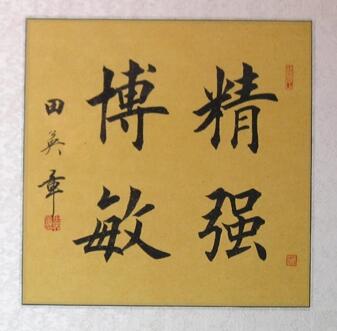 精强
博敏
田英章